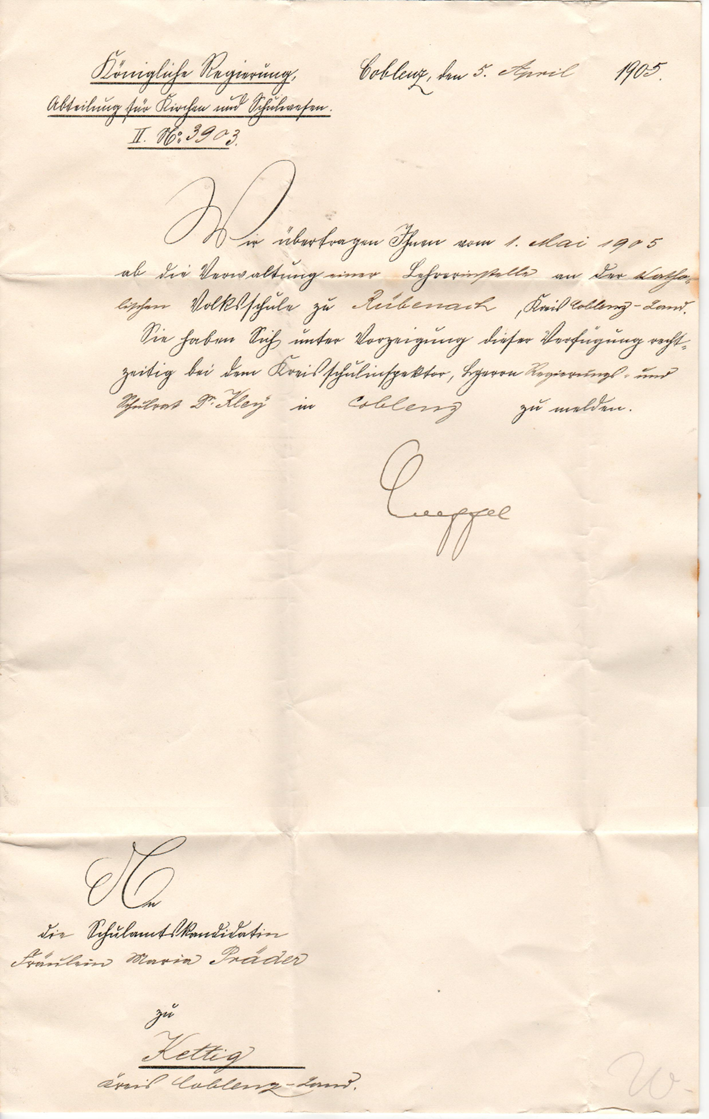 Königliche Regierung,
Coblenz, den 5. April 1905.
Abteilung für Kirchen und Schulwesen.
II. No 3903.
Wir übertragen Ihnen vom 1. Mai 1905
ab die Verwaltung einer Lehrerinstelle an der katho-
lischen Volksschule zu Rübenach, Kreis Coblenz-Land.
Sie haben Sich unter Vorzeigung dieser Verfügung recht-
zeitig bei dem Kreisschulinspektor, Herrn Regierungs- und
Schulrat Dr. Kley in Coblenz zu melden.
An
die Schulamtskandidatin
Fräulein Maria Präder
zu
Kettig
Kreis Coblenz-Land.
W.